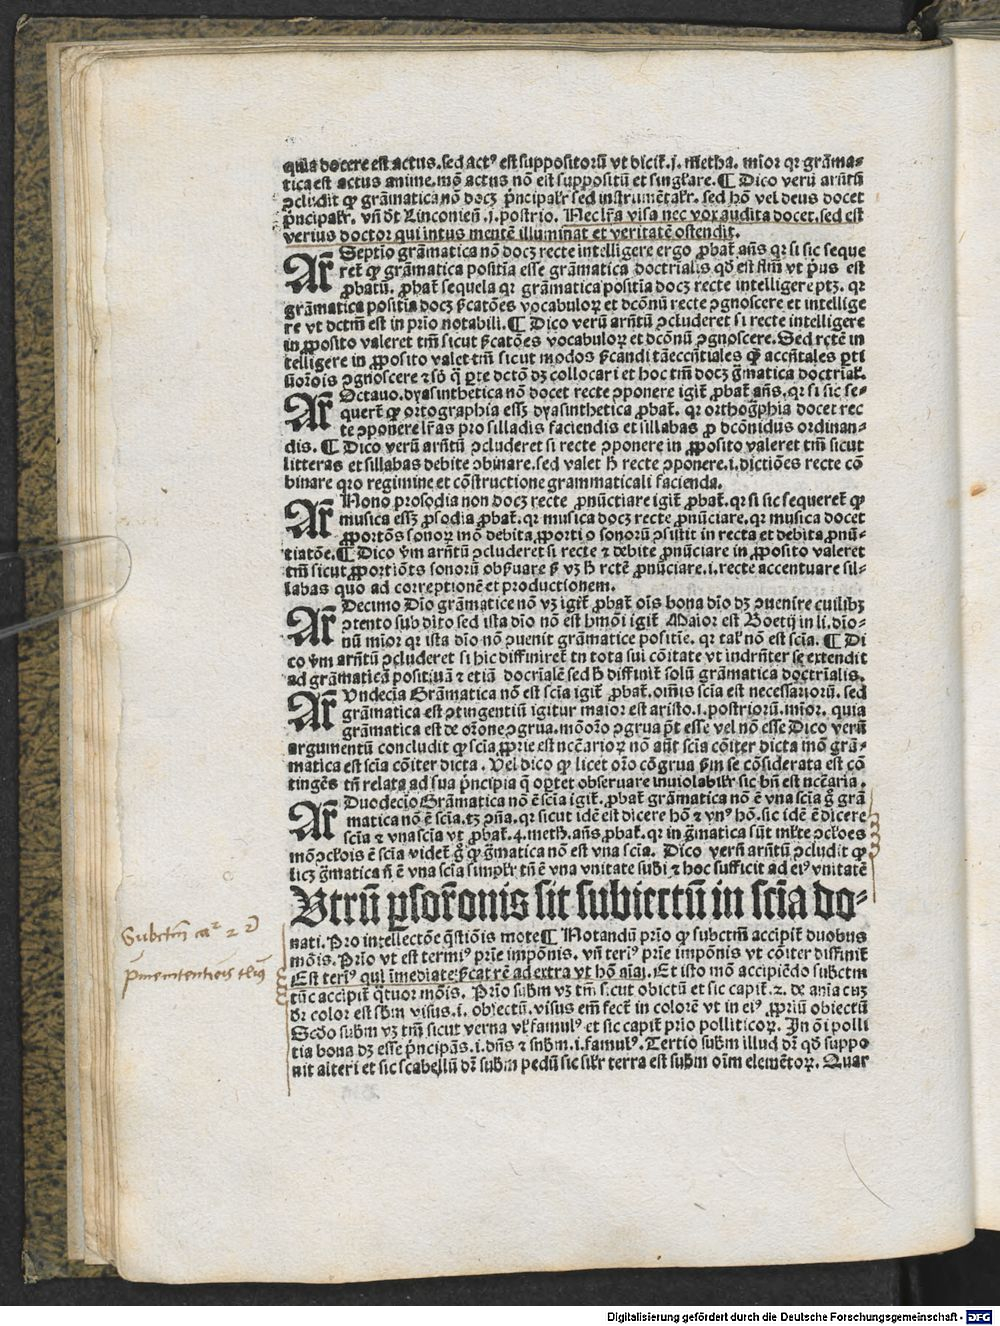 quia docere est actus. sed actꝰ est suppositorū vt dicit̄. j. metha. mīor qꝛ grāma-
tica est actus anime. mō actus nō est suppositū et singl̄are. ¶ Dico verū arn̄tū
ꝯcludit ꝙ grāmatica nō docꝫ p̄ncipal̄r sed instrumētal̄r. sed hō vel deus docet
p̄ncipal̄r. vn̄ dt̄ Linconien̄. j. postrio. Nec lr̄a visa nec vox audita docet. sed est
verius doctor qui intus mentē illuminat et veritatē ostendit.
Ar̄ Septīo grāmatica nō docꝫ recte intelligere ergo ꝓbat̄ an̄s qꝛ si sic seque
ret̄ ꝙ grāmatica positīa esse grāmatica doctrialis qd̄ est flm̄ vt p̄us est
ꝓbatū. ꝓbat̄ sequela qꝛ grāmatica positīa docꝫ recte intelligere ptꝫ. qꝛ
grāmatica positīa docꝫ ꝯcatōes vocabuloꝝ et dcōnū recte ꝯgnoscere et intellige
re vt dctm̄ est in prīo notabili. ¶ Dico verū arn̄tū ꝯcluderet si recte intelligere
in ꝓposito valeret tm̄ sicut ꝯcatōes vocabuloꝝ et dcōnū ꝯgnoscere. Sed rctē in
telligere in ꝓposito valet tm̄ sicut modos ꝯcandi tā eccn̄tiales ꝙ̄ accn̄tales ꝑti
ꝯgnoscere et hoc tm̄ docꝫ gmatica doctrial̄.
Ar̄ Octauo. dyasinthetica nō docet recte ꝯponere igit̄ ꝓbat̄ an̄s. qꝛ si sic se-
queret̄ ꝙ ortographia essꝫ dyasinthetica ꝓbat̄. qꝛ orthogphia docet rec
te ꝯponere lr̄as pro silladis faciendis et sillabas ꝓ dcōnidus ordinan-
dis. ¶ Dico verū arn̄tū ꝯcluderet si recte ꝯponere in ꝓposito valeret tm̄ sicut
litteras et sillabas debite ꝯbinare. sed valet h̄ recte ꝯponere. i. dictiōes recte cō
binare quo regimine et cōstructione grammaticali facienda.
Ar̄ Nono prosodia non docꝫ recte ꝓnūctiare igit̄ ꝓbat̄. qꝛ si sic sequeret̄ ꝙ
musica essꝫ ꝓsodia ꝓbat̄. qꝛ musica docꝫ recte ꝓnūciare. qꝛ musica docet
ꝓportōes sonoꝝ mō debita ꝓporti o sonorū ꝯsistit in recta et debita ꝓnū-
tiatōe. ¶ Dico v̄m arn̄tū ꝯcluderet si recte ⁊ debite ꝓnūciare in ꝓposito valeret
tm̄ sicut ꝓportiōes sonorū obseruare vꝫ h̄ rctē ꝓnūciare. i. recte accentuare sil-
labas quo ad correptionē et productionem.
Ar̄ Decimo Dīo grāmatice nō vꝫ igit̄ ꝓbat̄ oīs bona dīo dꝫ ꝯuenīre cuilibꝫ
ꝯtento sub dīto sed ista dīo nō est hmōi igit̄ Maior est Boetij in li. dīo-
nū mīor qꝛ ista dīo nō ꝯuenit grāmatice positīe. qꝛ tal̄ nō est scīa. ¶ Di
co v̄m arn̄tū ꝯcluderet si hic diffiniret̄ tn̄ tota sui cōitate vt indrn̄ter se extendit
ad grāmaticā positiuā ⁊ etiā docrialē sed h̄ diffinit̄ solū grāmatica doctrīalis.
Ar̄ Vndecīa Grāmatica nō est scīa igit̄ ꝓbat̄. oīnis scīa est necessarioruꝫ. sed
grāmatica est ꝯtingentiū igitur maior est aristo. i. postriorū. mīor. quia
grāmatica est de orōne ꝯgrua. mō orō ꝯgrua pt̄ esse vel nō esse Dico verū
argumentū concludit ꝙ scīa ꝓprie est nccēarioꝝ nō aūt scīa cōiter dicta mō grā-
matica est scīa cōiter dicta. Vel dico ꝙ licet orō cōgrua ẜm se cōsiderata est cō
tingēs tn̄ relata ad sua p̄ncipia q̄ oꝑtet obseruare inuiolabil̄r sic bn̄ est ncc̄aria.
Ar̄ Duodecīo Grāmatica nō ē scīa igit̄. ꝓbat̄ grāmatica nō ē vna scīa g̊ grā
matica nō ē scīa. tꝫ ꝯn̄a. qꝛ sicut idē est dicere hō ⁊ vnꝰ hō. sic idē ē dicere
scīa ⁊ vna scīa vt ꝓbat̄. 4. meth. an̄s ꝓbat̄. qꝛ in gmatica sūt ml̄te ꝯcl̄oes
mō ꝯcl̄ois ē scīa videt̄ g̊ ꝙ gmatica nō est vna scīa. Dico verū arn̄tū ꝯcludit ꝙ
licꝫ gmatica n̄ ē vna scīa simpl̄r tn̄ ē vna vnitate subi ⁊ hoc sufficit ad eiꝰ vnitatē
Vtrū ꝑs orōnis sit subiectū in scīa do-
nati. Pro intellectōe q̄stiōis mote ¶ Notandū prīo ꝙ subctm̄ accipit̄ duobus
mōis. Prīo vt est termīꝰ prīe impōnis. vn̄ terīꝰ prīe impōnis vt cōiter diffinit̄
Est terīꝰ qui īmediate ꝯcat rē ad extra vt hō aīal. Et isto mō accipiēdo subctm
tūc accipit̄ q̄tuor mōis. Prīo subm̄ vꝫ tm̄ sicut obictū et sic capit̄. 2. de anīa cuꝫ
dr̄ color est sbm̄ visus. i. obiectū. visus em̄ fect̄ in colorē vt in eiꝰ ꝓpriū obiectū
Scd̄o subm̄ vꝫ tm̄ sicut verna vl̄ famulꝰ et sic capit̄ prīo polliticoꝝ. In ōi polli
tia bona dꝫ esse p̄ncipās. i. dn̄s ⁊ subm̄. i. famulꝰ. Tertio subm̄ illud dr̄ qd̄ suppo
nit alteri et sic scabellū dr̄ subm̄ pedū sic sil̄r terra est subm̄ oīm elemētoꝝ. Quar
Digitalisierung gefördert durch die Deutsche Forschungsgemeinschaft - DFG